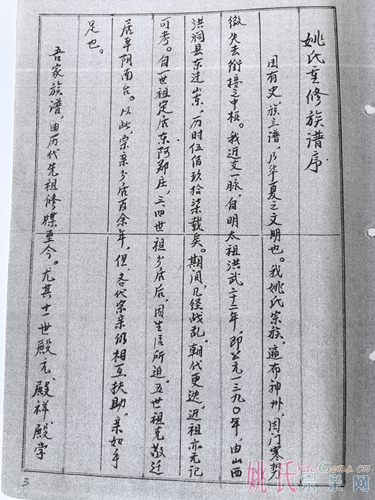 姚氏重修族谱序
国有史,族立谱,乃华夏之文明也。我姚氏宗族,遍布神州,因门寒势
微失去衔接之中枢。我近支一脉,自明太祖洪武二十二年,即公元一三九〇年,由山西
洪洞县东迁山东,历时伍佰玖拾柒载矣。期间几经战乱,朝代更迭近祖亦无记
可考。自一世祖定居东阿郑庄,三、四世祖分居后,因生活所迫五世祖克敬迁
居平阴南台。以此,宗亲分居百余年,但各代宗亲仍相互扶助,亲如手
足也。
吾家族谱,由历代先祖修牒至今。尤其十一世殿元、殿祥殿学
3
姚氏宗亲网
YaoGene.cn